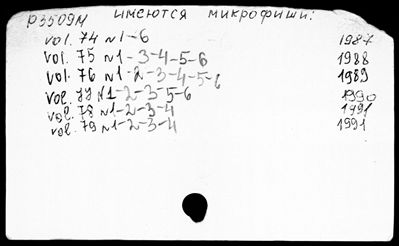 р3509м имеются микрофиши:
vol. 74 n1-6 1987
vol. 75 n1-3-4-5-6 1988
vol. 76 n1-2-3-4-5-6 1989
vol. 77 n1-2-3-5-6 1990
vol. 78 n1-2-3-4 1991
vol. 79 n1-2-3-4 1991